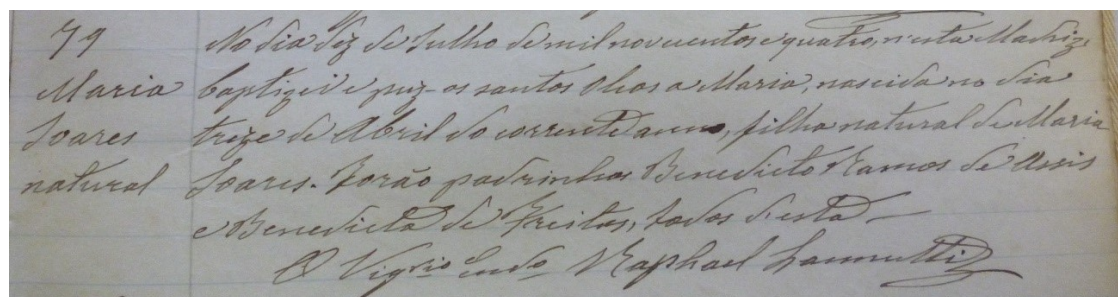 79
Maria
Soares
natural
No dia dez de Julho de mil novecentos e quatro, n'esta Matriz,
baptizei e puz os santos Oleos a Maria, nascida no dia
treze de Abril do corrente anno, filha natural de Maria
Soares. Forão padrinhos Benedicto Ramos de Assis
e Benedicta de Freitas, todos d'esta
O Vigrio Endo Raphael